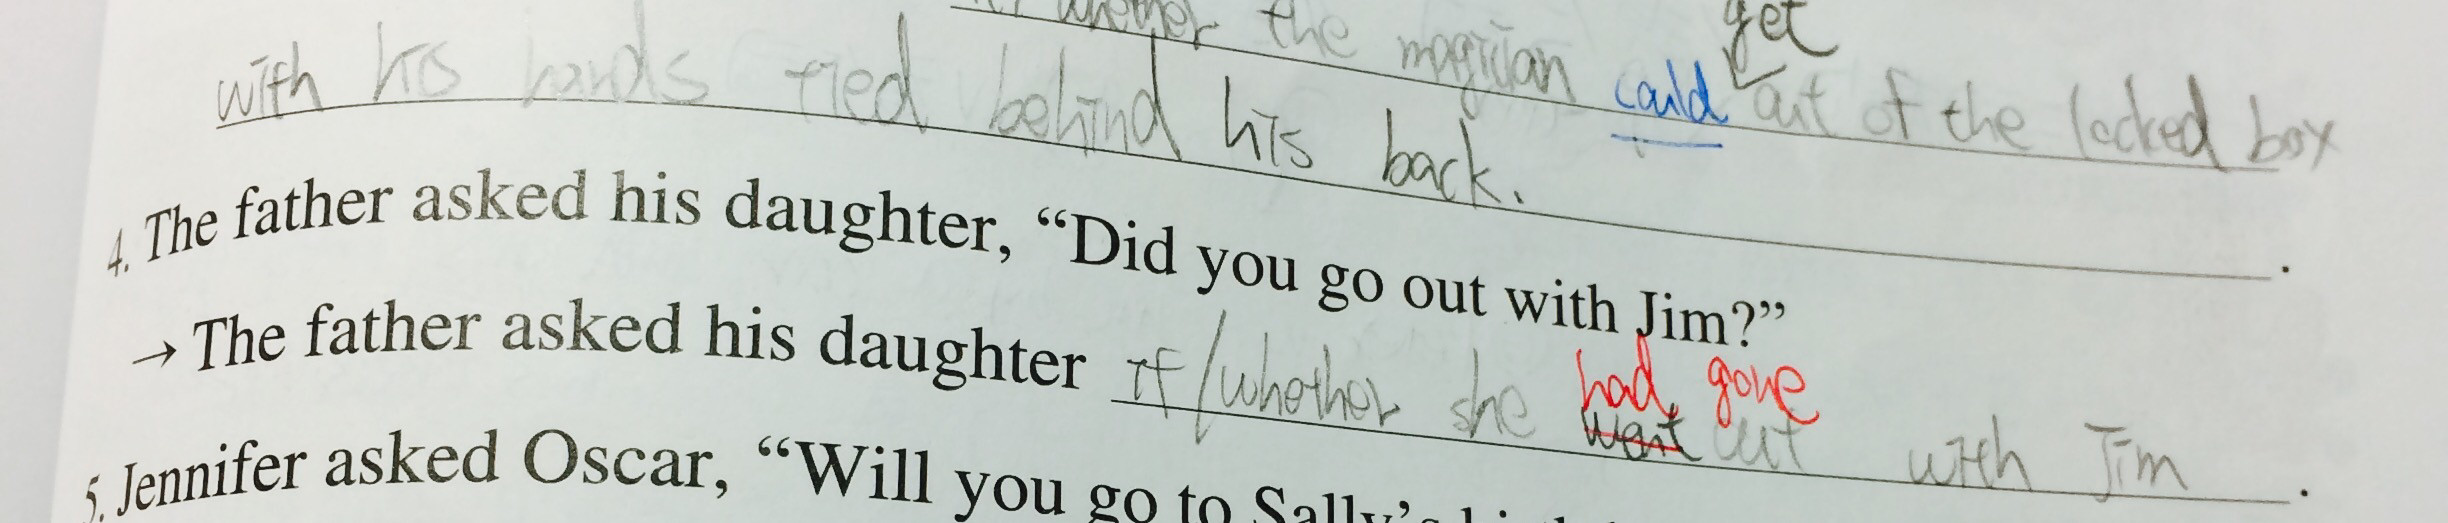 whether the magician could get out of the locked box
with his hands tied behind his back.
4. The father asked his daughter, “Did you go out with Jim?”
→ The father asked his daughter if/whether she went had gone out with Jim.
5. Jennifer asked Oscar, “Will you go to Sally's